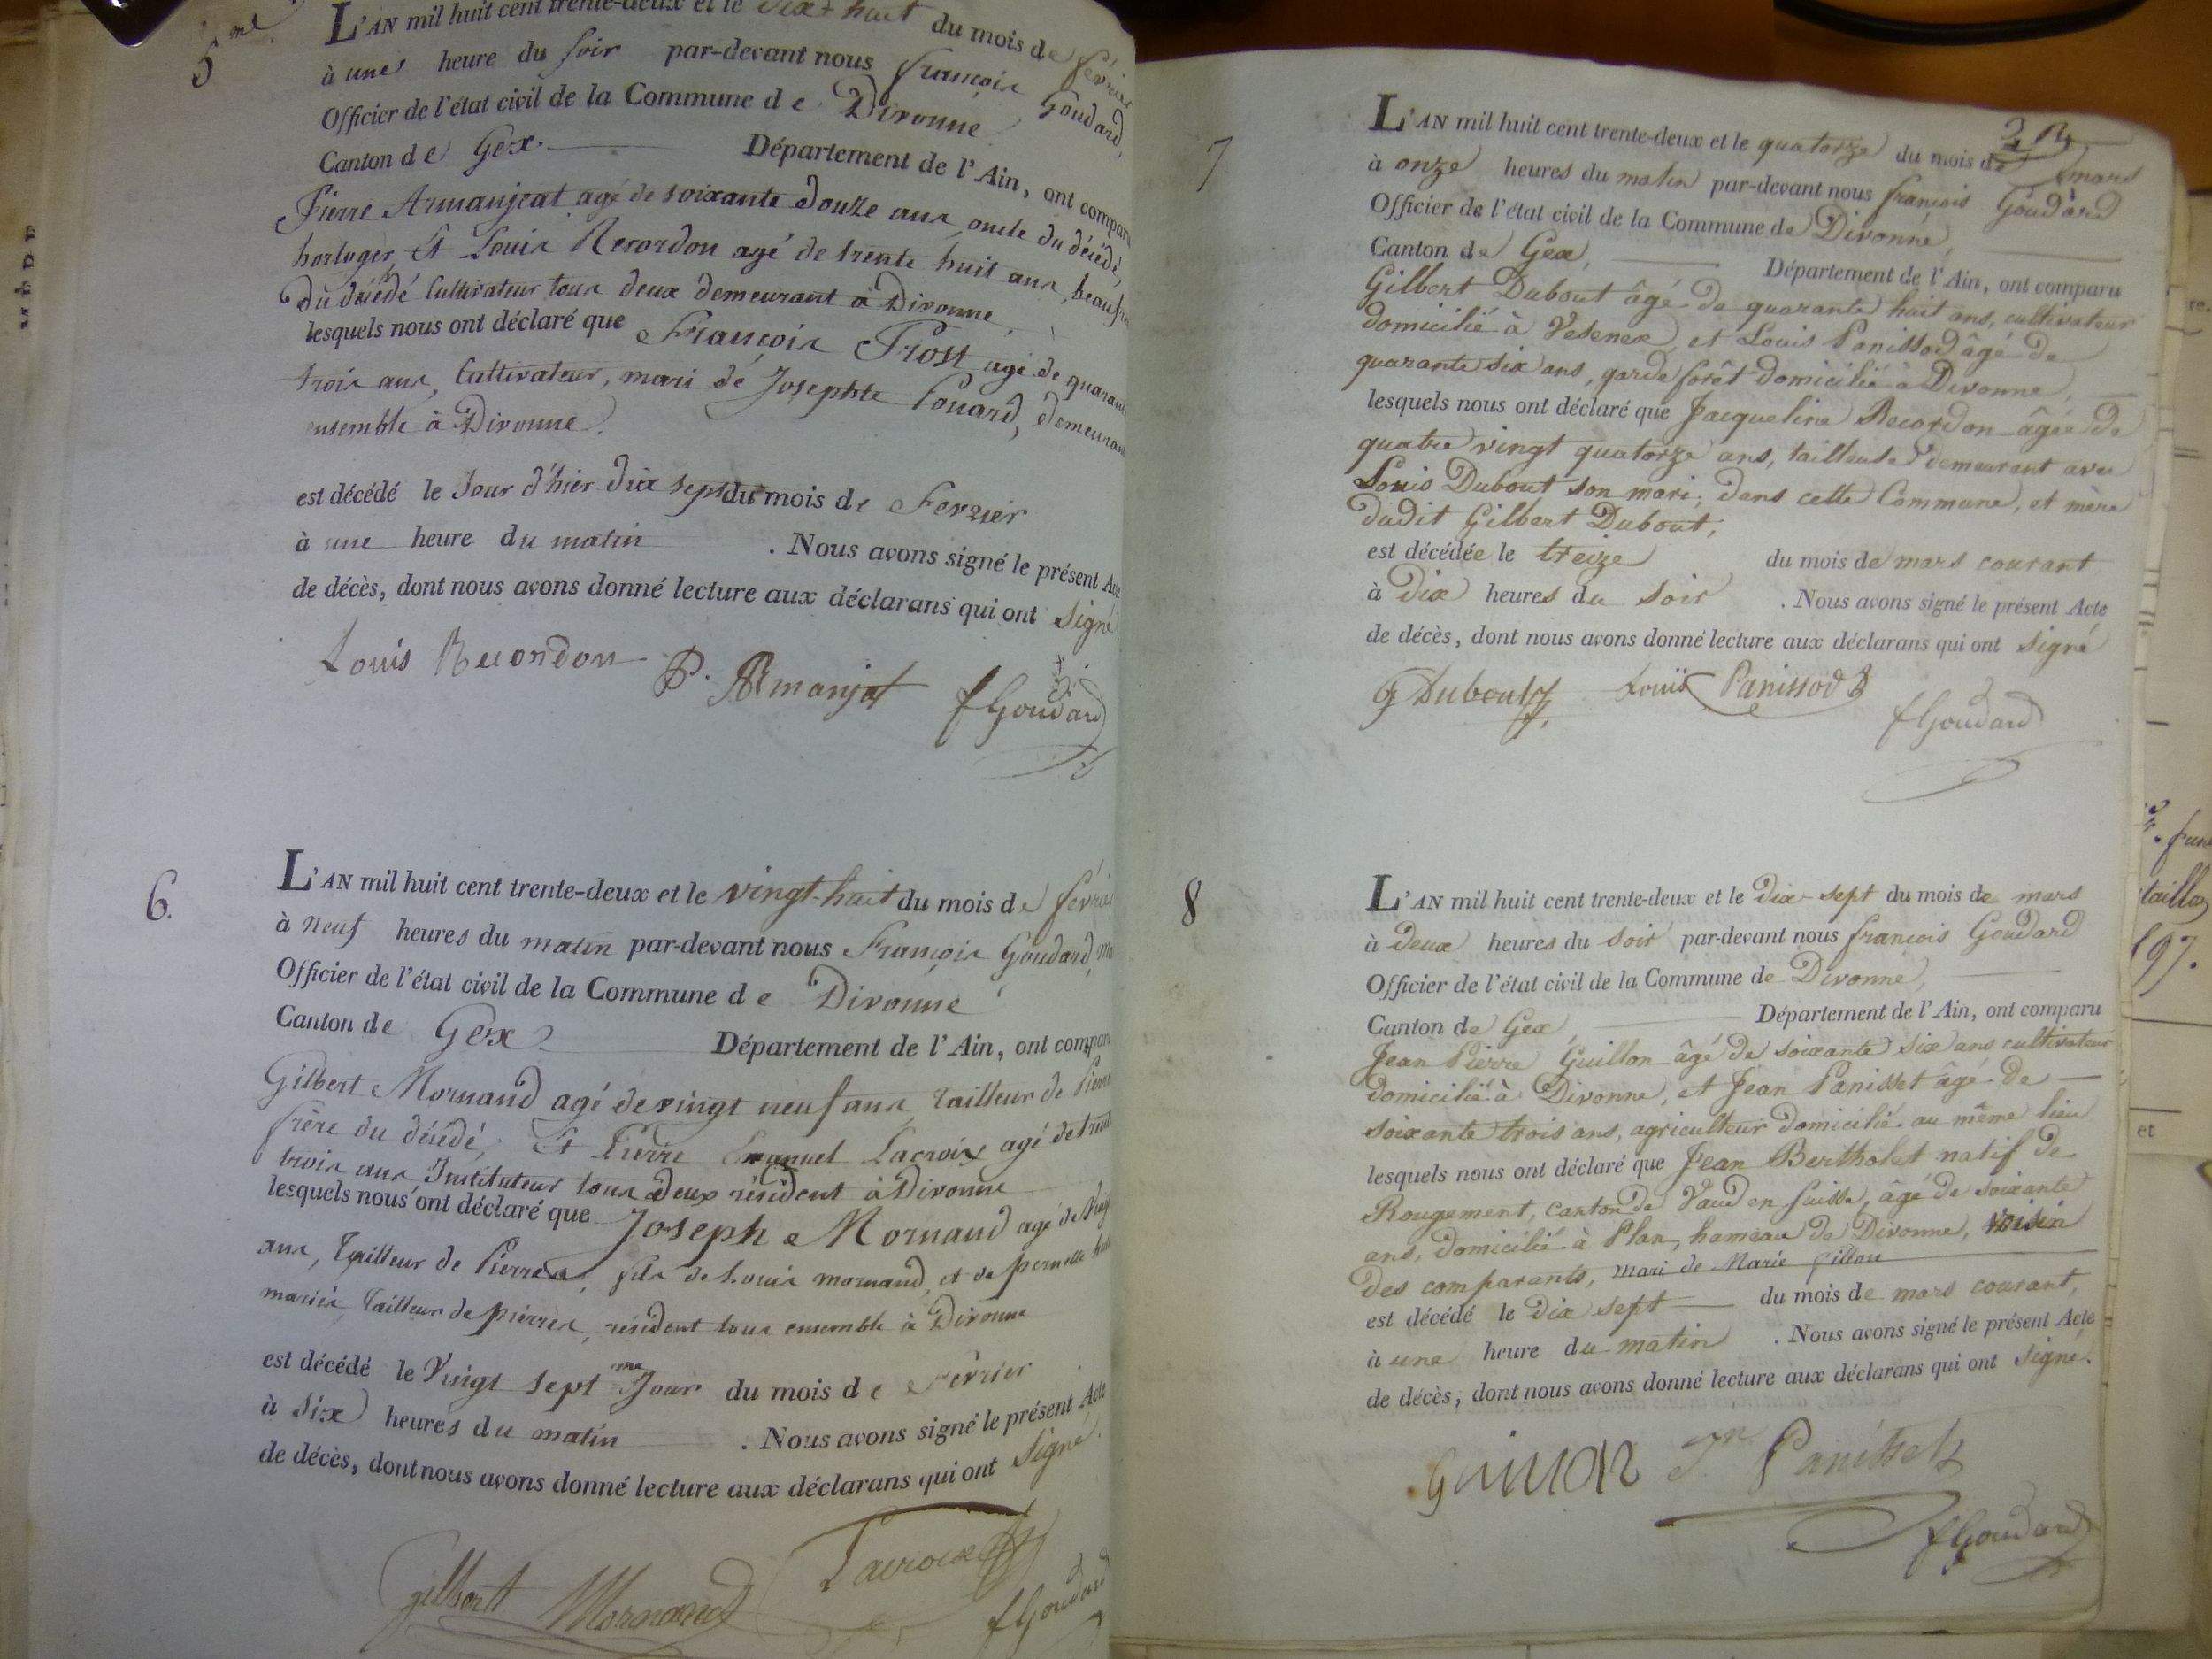 5me
L'AN mil huit cent trente-deux et le dix-huit du mois de février
à une heure du soir par-devant nous françois Goudard,
Officier de l'état civil de la Commune de Divonne
Canton de Gex. Département de l'Ain, ont comparu
Pierre Armanjeat agé de soixante douze ans, oncle du décédé,
horloger, Et Louis Recordon agé de trente huit ans, beaufrè
du décédé Cultivateur tous deux demeurant à Divonne,
lesquels nous ont déclaré que François Prost agé de quarante
trois ans, Cultivateur, mari de Josephte Pouard, demeurant
ensemble à Divonne.
est décédé le Jour d'hier dix sept du mois de Fevrier
à une heure du matin . Nous avons signé le présent Acte
de décès, dont nous avons donné lecture aux déclarans qui ont signé
Louis Recordon P. Armanjat fGoudard
6.
L'AN mil huit cent trente-deux et le vingt-huit du mois de févrie
à neuf heures du matin par-devant nous François Goudard,
Officier de l'état civil de la Commune de Divonne
Canton de Gex Département de l'Ain, ont compar
Gilbert Mornand agé de vingt neuf ans, Tailleur de Pierre
frère du décédé, Et Pierre Emanuel Lacroix agé de trente
trois ans Instituteur tous deux résident à Divonne
lesquels nous ont déclaré que Joseph Mornand agé de Vingt
ans, Tailleur de Pierres, fils de Louis mornand, et de pernette
mariés, Tailleur de pierres, résident tous ensemble à Divonne
est décédé le Vingt sept me Jour du mois de Fevrier
à six heures du matin . Nous avons signé le présent Acte
de décès, dont nous avons donné lecture aux déclarans qui ont Signé.
gilbert Mornand Lacroix fGoudard
7
L'AN mil huit cent trente-deux et le quatorze du mois de mars
à onze heures du matin par-devant nous françois Goudard
Officier de l'état civil de la Commune de Divonne,
Canton de Gex, Département de l'Ain, ont comparu
Gilbert Dubout âgé de quarante huit ans, cultivateur
domicilié à Vesenex, et Louis Panissod âgé de
quarante six ans, garde forêt domicilié à Divonne,
lesquels nous ont déclaré que Jacqueline Recordon âgée de
quatre vingt quatorze ans, tailleuse demeurant avec
Louis Dubout son mari, dans cette Commune, et mère
dudit Gilbert Dubout,
est décédée le treize du mois de mars courant
à dix heures du soir . Nous avons signé le présent Acte
de décès, dont nous avons donné lecture aux déclarans qui ont signé
G Dubout Louis Panissod fGoudard
8
L'AN mil huit cent trente-deux et le dix-sept du mois de mars
à deux heures du soir par-devant nous françois Goudard
Officier de l'état civil de la Commune de Divonne,
Canton de Gex, Département de l'Ain, ont comparu
Jean Pierre Guillon âgé de soixante six ans cultivateur
domicilié à Divonne, et Jean Panisset âgé de
soixante trois ans, agriculteur domicilié au même lieu
lesquels nous ont déclaré que Jean Bertholet natif de
Rougement, canton de Vaud en Suisse, âgé de soixante
ans, domicilié à Plan, hameau de Divonne, voisin
des comparants, mari de Marie Gillon
est décédé le dix sept du mois de mars courant,
à une heure du matin . Nous avons signé le présent Acte
de décès, dont nous avons donné lecture aux déclarans qui ont signé.
Guillon Jn Panisset
fGoudard
taille
97.
et